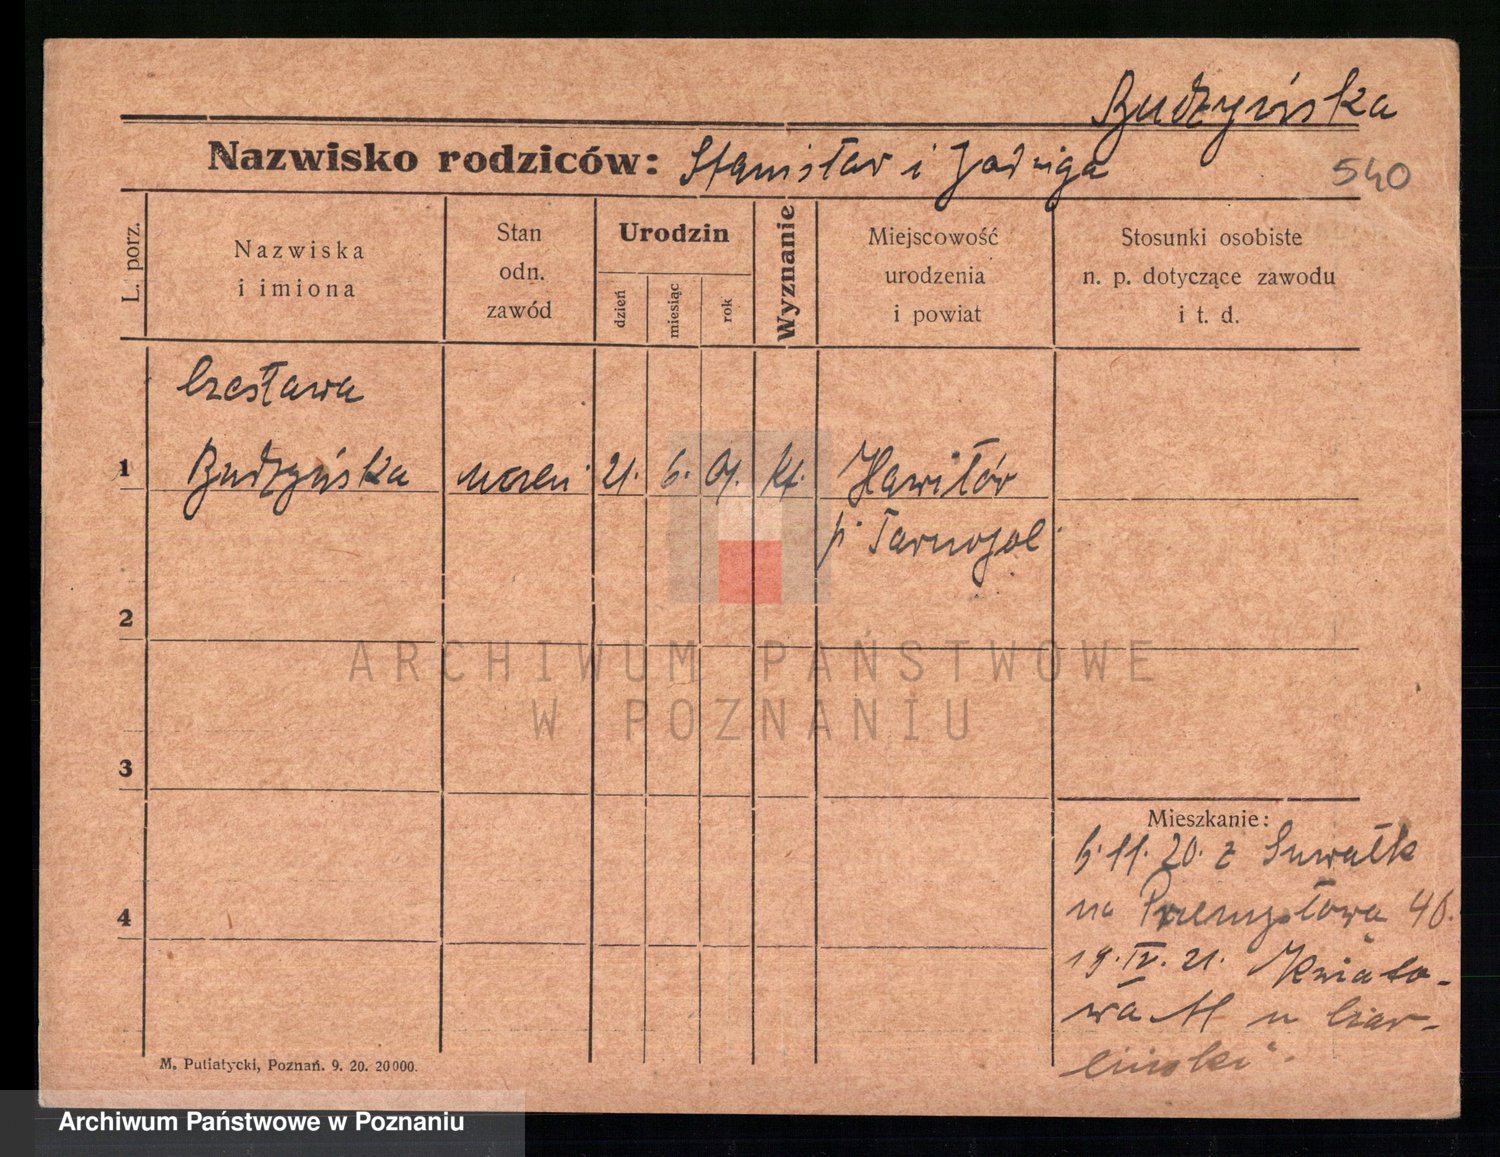 Budzyńska
Nazwisko rodziców: Stanisław i Jadwiga
540
L. porz.
Nazwiska
i imiona
Stan
odn.
zawód
Urodzin
dzień
miesiąc
rok
Wyznanie
Miejscowość
urodzenia
i powiat
Stosunki osobiste
n. p. dotyczące zawodu
i t. d.
Czesława
1 Budzyńska uczeń 21. 6. 01. kt. Hawiłów
p. Tarnopol
2
ARCHIWUM PAŃSTWOWE
W POZNANIU
3
Mieszkanie:
6.11.20. z Suwałk
4
na Przemysłowa 46.
19.IV.21. Kwiato-
wa 11 u
M. Putiatycki, Poznań. 9. 20. 20000.
Archiwum Państwowe w Poznaniu